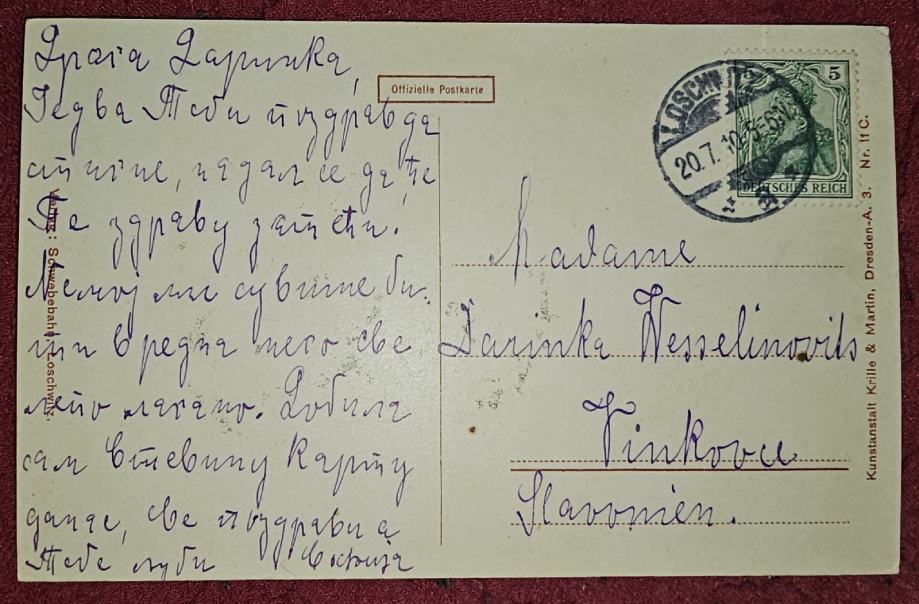 Драга Даринка,
Једва Теби поздрав да
стигне, надам се да ће
Те здраву затећи.
Немој ми сувише би-
ти вредна него све
лепо лагано. Добила
сам Стевину карту
данас, све поздрави а
Тебе љуби
Offizielle Postkarte
LOSCHWITZ
20.7.10.
5 5
DEUTSCHES REICH
Madame
Darinka Wesselinovits
Vinkovce
Slavonien.
Verlag: Schwebebahn Loschwitz.
Kunstanstalt Krille & Martin, Dresden-A. 3. Nr. 11 C.